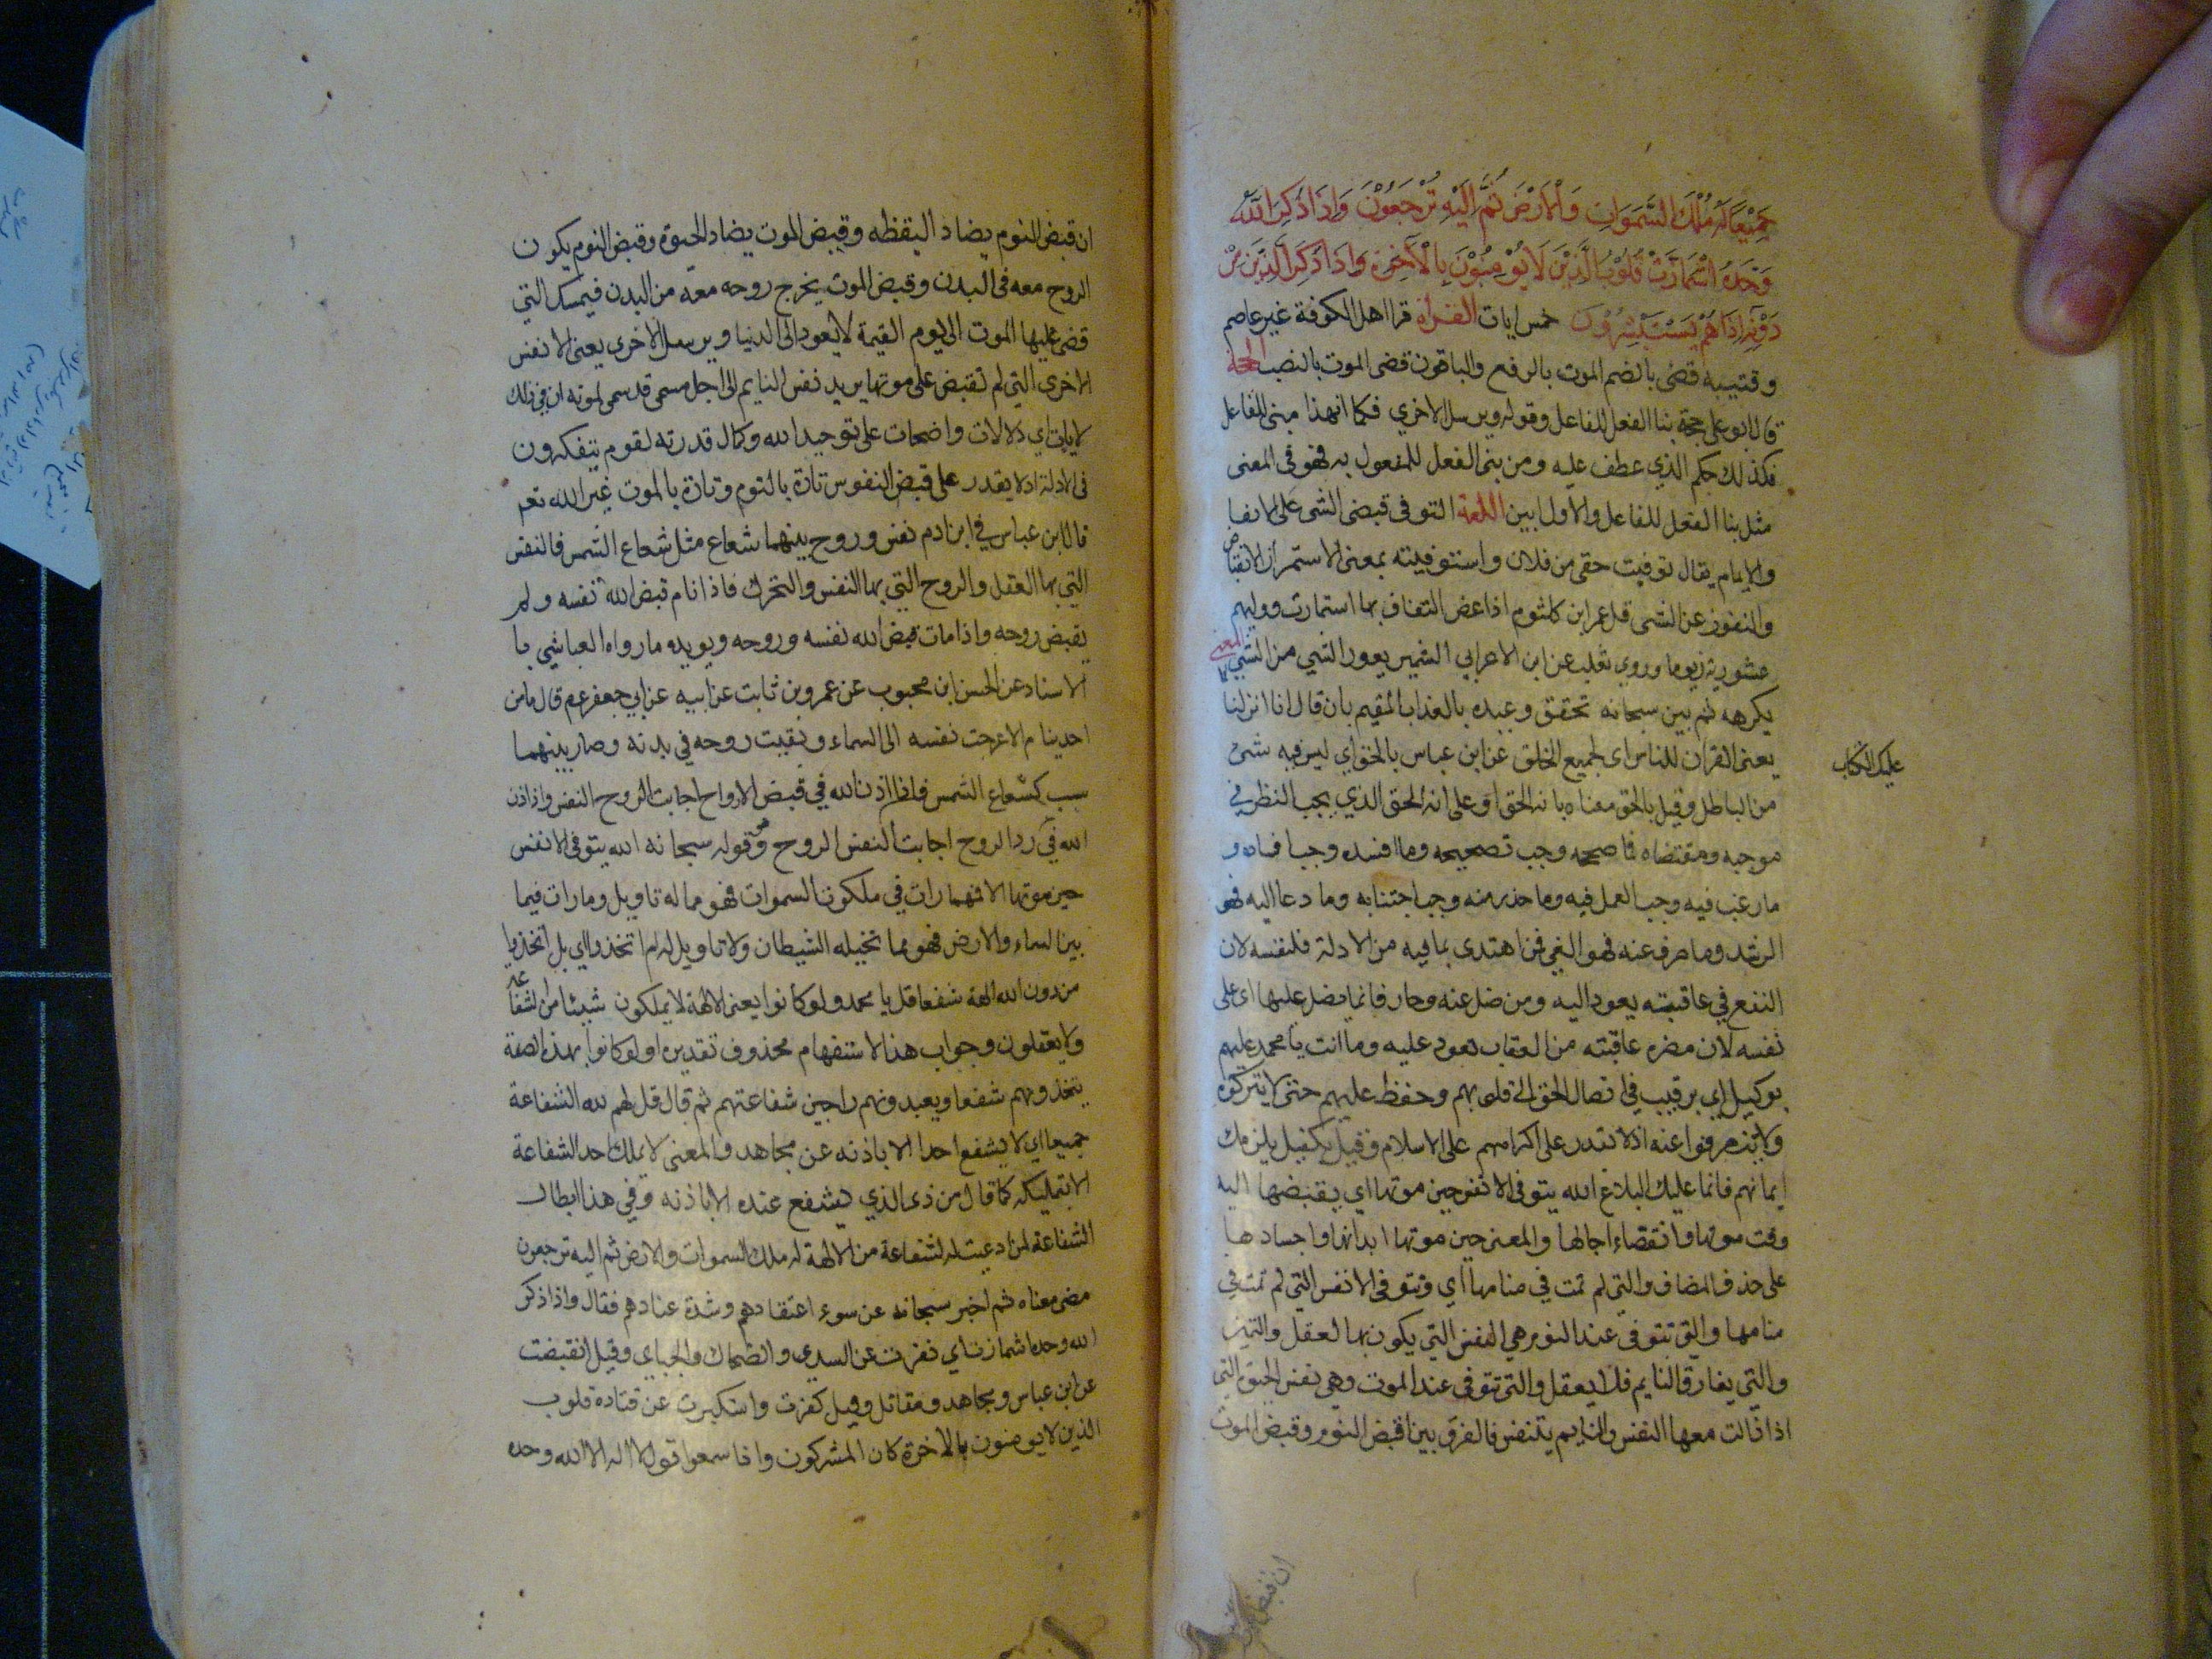 جَمِيْعًا لَهُ مُلْكُ السَّمَوَاتِ وَالْاَرْضِ ثُمَّ اِلَيْهِ تُرْجَعُوْنَ وَاِذَا ذُكِرَ اللهُ
وَحْدَهُ اشْمَأزَّتْ قُلُوْبُ الَّذِيْنَ لَا يُوْمِنُوْنَ بِالْاَخِرَةِ وَاِذَا ذُكِرَ الَّذِيْنَ مِنْ
دُوْنِهِ اِذَا هُمْ يَسْتَبْشِرُوْنَ خمس ايات القراة قرا اهل الكوفة غير عاصم
وقتيبه قضى بالضم الموت بالرفع والباقون قضى الموت بالنصب الحجة
قال ابو على حجة بنا الفعل للفاعل وقوله ويرسل الاخري فكما ان هذا مبنى للفاعل
فكذلك حكم الذي عطف عليه ومن بنى الفعل للمفعول به فهو فى المعنى
مثل بنا الفعل للفاعل والأول ابين اللغة التوفى قبض الشى على الايفا
والايام يقال توفيت حقى من فلان واستوفيته بمعنى الاستمرار الانقباض
والنفور عن الشى قل عمر ابن كلثوم اذا عض الثقاف بها اشمازت ووليهم
عشوزنة زبونا وروى ثعلب عن ابن الاعرابي الشمز نفور الشي من الشي المعنى
يكرهه ثم بين سبحانه تحقق وعيده بالعذاب المقيم بان قال انا انزلنا
عليك الكتاب
يعنى القران للناس اى لجميع الخلق عن ابن عباس بالحق اي ليس فيه شئ
من الباطل وقيل بالحق معناه بانه الحق او على انه الحق الذي يجب النظر في
موجبه ومقتضاه فما صححه وجب تصحيحه وما افسده وجب افساده و
ما رغب فيه وجب العمل فيه وما حذر منه وجب اجتنابه وما دعا اليه فهو
الرشد وما صرف عنه فهو الغى فمن اهتدى بما فيه من الادلة فلنفسه لان
النفع في عاقبته يعود اليه ومن ضل عنه وحار فانما يضل عليها اى على
نفسه لان مضرة عاقبته من العقاب تعود عليه وما انت يا محمد عليهم
بوكيل اي برقيب في ايصال الحق الى قلوبهم وحفظ عليهم حتى لا يتركوه
ولا ينصرفوا عنه اذ لا تقدر على اكراههم على الاسلام وقيل بكفيل يلزمك
ايمانهم فانما عليك البلاغ الله يتوفى الانفس حين موتها اي يقبضها اليه
وقت موتها وانقضاء اجالها والمعنى حين موتها ابدانها واجسادها
على حذف المضاف والتى لم تمت في منامها اي ويتوفى الانفس التى لم تمت في
منامها والتى تتوفى عند النوم هي النفس التي يكون بها العقل والتميز
والتي يفارق النايم فلا يعقل والتى تتوفى عند الموت وهى نفس الحيوة التي
اذا زالت معها النفس والنايم يتنفس فالفرق بين قبض النوم وقبض الموت
ان قبض
ان قبض النوم يضاد اليقظه وقبض الموت يضاد الحيوة وقبض النوم يكون
الروح معه فى البدن وقبض الموت يخرج روحه معه من البدن فيمسك التي
قضى عليها الموت الى يوم القيمة لا يعود الى الدنيا ويرسل الاخرى يعنى الانفس
الاخرى التي لم تقبض على موتها يريد نفس النايم الى اجل مسمى قد سمى لموته ان في ذلك
لايات اي دلالات واضحات على توحيد الله وكمال قدرته لقوم يتفكرون
فى الادلة اذ لا يقدر على قبض النفوس تارة بالنوم وتارة بالموت غير الله تعم
قال ابن عباس في ابن ادم نفس وروح بينهما شعاع مثل شعاع الشمس فالنفس
التي بها العقل والروح التي بها النفس والتحرك فاذا نام قبض الله نفسه ولم
يقبض روحه واذا مات قبض الله نفسه وروحه ويويده ما رواه العياشي با
لاسناد عن الحسن ابن محبوب عن عمرو بن ثابت عن ابيه عن ابي جعفر عم قال ما من
احد ينام الا عرجت نفسه الى السماء وبقيت روحه في بدنه وصار بينهما
سبب كشعاع الشمس فاذا اذن الله في قبض الارواح اجابت الروح النفس واذا اذن
الله في رد الروح اجابت النفس الروح وهو قوله سبحانه الله يتوفى الانفس
حين موتها الا فمهما رات في ملكوت السموات فهو مما له تاويل وما رات فيما
بين السماء والارض فهو مما تخيله الشيطان ولا تاويل له ام اتخذوا اي بل اتخذوا
من دون الله الهة شفعا قل يا محمد ولو كانوا يعنى الالهة لا يملكون شيئا من الشفاعة
ولا يعقلون وجواب هذا الاستفهام محذوف تقديره اولو كانوا بهذه الصفة
يتخذونهم شفعا ويعبدونهم راجين شفاعتهم ثم قال قل لهم لله الشفاعة
جميعا اي لا يشفع احد الا باذنه عن مجاهد والمعنى لا يملك احد الشفاعة
الا بتمليكه كما قال من ذى الذي يشفع عنده الا باذنه وفي هذا ابطال
الشفاعة لمن ادعيت له الشفاعة من الالهة له ملك السموات والارض ثم اليه ترجعون
مضى معناه ثم اخبر سبحانه عن سوء اعتقادهم وشدة عنادهم فقال واذا ذكر
الله وحده اشمازت اي نفرت عن السدى والضحاك والجباى وقيل انقبضت
عن ابن عباس ومجاهد ومقاتل وقيل كفرت واستكبرت عن قتادة قلوب
الذين لا يومنون بالاخرة كان المشركون واذا سمعوا قول لا اله الا الله وحده